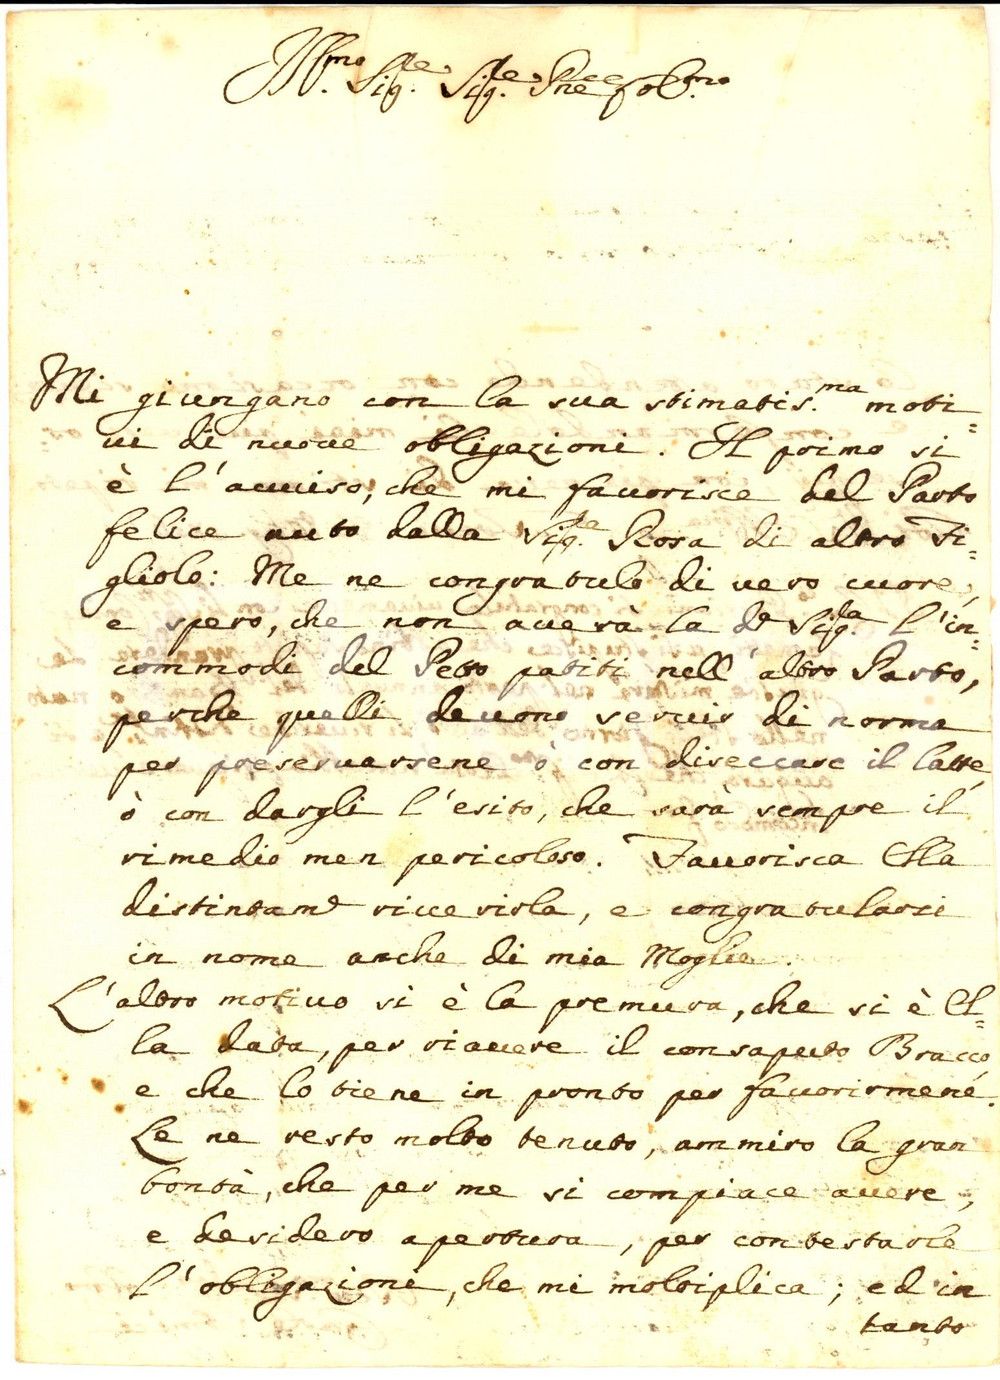 Ill.mo Sig.re Sig.re Pne e Col.mo
Mi giungano con la sua stimatis.ma moti=
vi di nuove obligazioni. Il primo si
è l'avviso, che mi favorisce del Parto
felice auto dalla Sig.ra Rosa di altro Fi=
gliolo: Me ne congratulo di vero cuore,
e spero, che non averà la d.a Sig.ra l'in=
commodi del Petto patiti nell'altro Parto,
perche quelli devono servir di norma
per preservarsene ò con diseccare il latte
ò con dargli l'esito, che sarà sempre il
rimedio men pericoloso. Favorisca Ella
distintam.e riverirla, e congratularsi
in nome anche di mia Moglie.
L'altro motivo si è la premura, che si è El=
la data, per riavere il consaputo Bracco
e che lo tiene in pronto per favorirmene.
Le ne resto molto tenuto, ammiro la gran
bontà, che per me si compiace avere,
e desidero apertura, per contestarle
l'obligazioni, che mi moltiplica; ed in
tanto